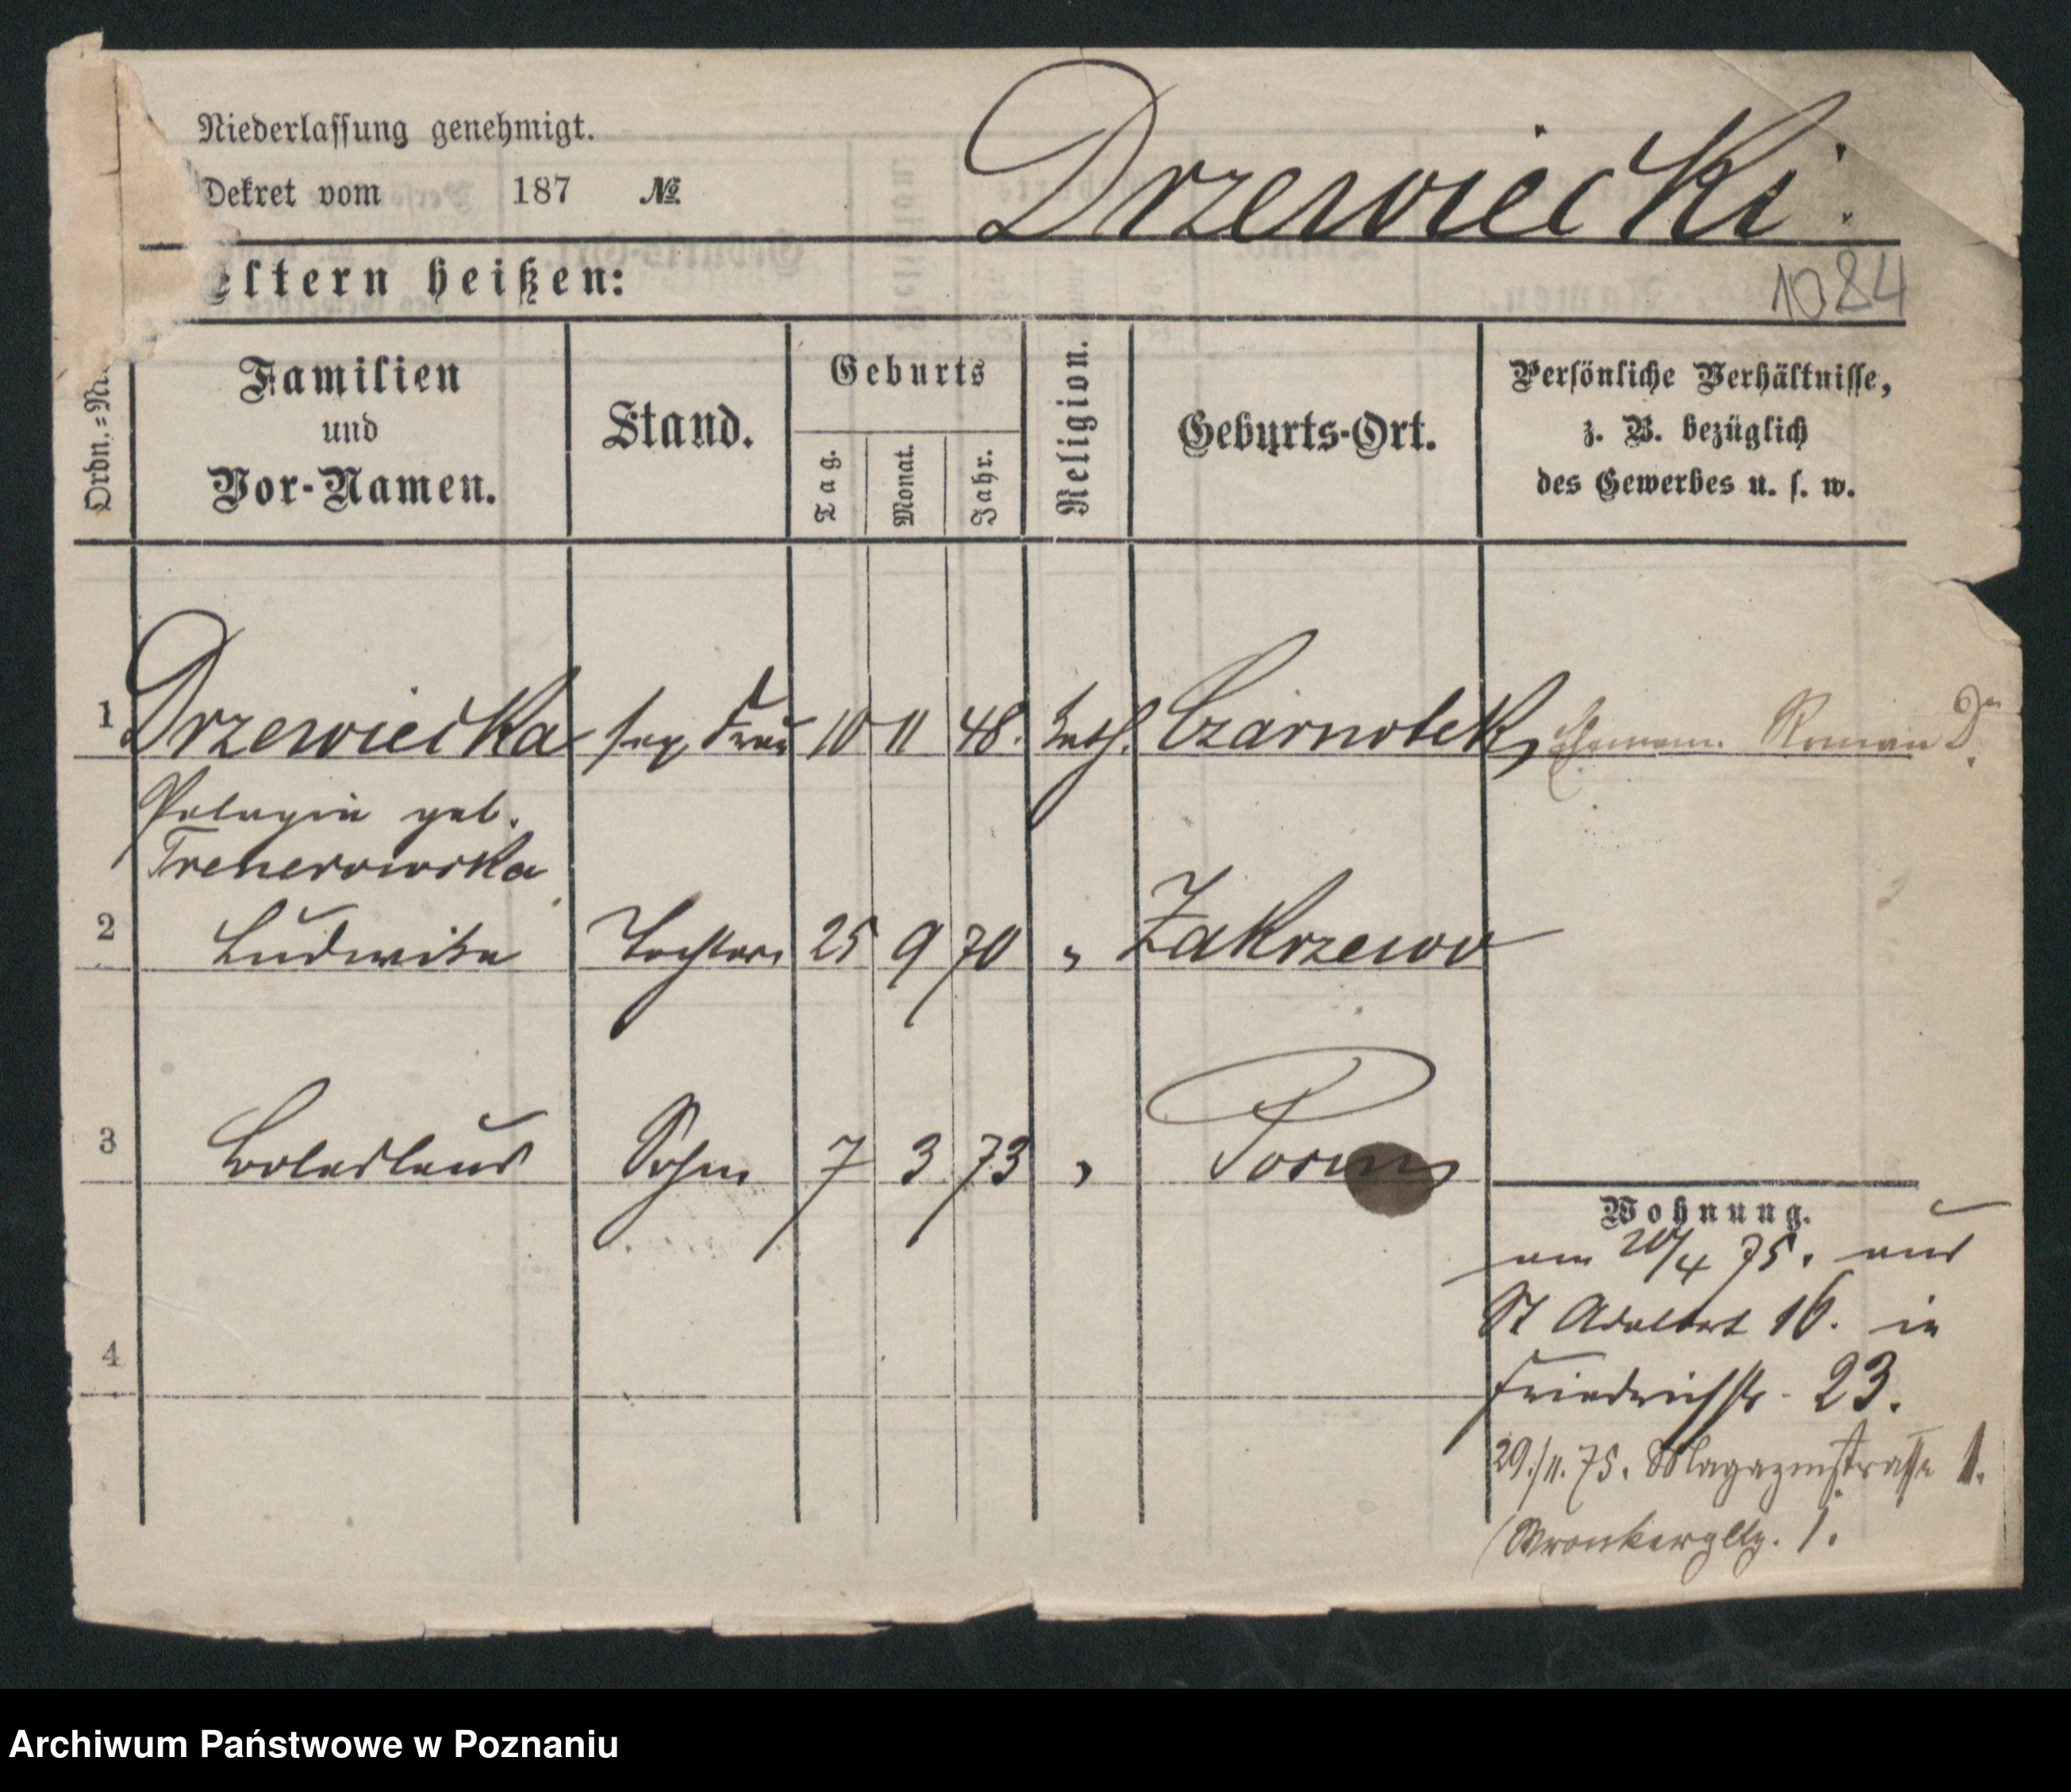 Niederlassung genehmigt.
Dekret vom 187 №
Drzewiecki.
eltern heißen:
1084
Ordn.=Nr.
Familien und Vor-Namen.
Stand.
Geburts
Tag.
Monat.
Jahr.
Religion.
Geburts-Ort.
Persönliche Verhältnisse,
z. B. bezüglich
des Gewerbes u. s. w.
1 Drzewiecka sep. Frau 10 11 48. kath. Czarnotek, Ehemann Roman D.
Pelagia geb.
2 Ludwika Tochter 25 9 70 " Zakrzewo
3 Boleslaus Sohn 7 3 73 " Posen
Wohnung.
am 20/4 75. aus
St Adalbert 16. in
Friedrichstr. 23.
29./11. 75. Magazinstrasse 1.
Wronkerpltz. 1.
4
Archiwum Państwowe w Poznaniu